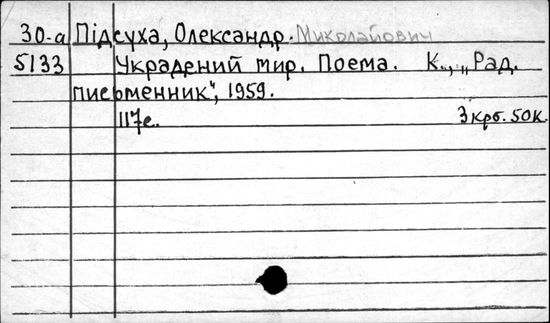 30-а Підсуха, Олександр. Миколайович
5133 Украдений мир. Поема. К., „Рад.
письменник", 1959.
117с. 3 крб. 50к.